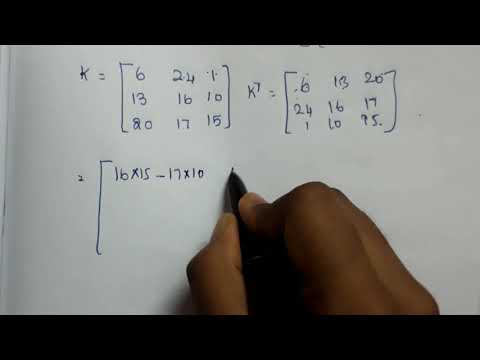 K = [ 6 24 1
13 16 10
20 17 15 ]
K^T = [ 6 13 20
24 16 17
1 10 15 ]
= [ 16×15 – 17×10